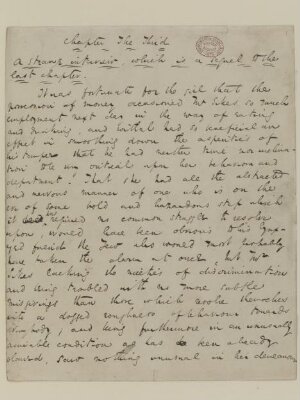 Chapter The Third
A strange interview, which is a sequel to the
last chapter.
It was fortunate for the girl that the
possession of money occasioned Mr Sikes so much
employment next day in the way of eating
and drinking, and withal had so beneficial an
effect in smoothing down the asperities of
his temper that he had neither time nor inclina-
tion to be very critical upon her behaviour and
deportment. That she had all the abstracted
and nervous manner of one who is on the
eve of some bold and hazardous step which
it had required no common struggle to resolve
upon, would have been obvious to his
friend the Jew who would most probably
have taken the alarm at once, but Mr
Sikes lacking the niceties of discrimination
and being troubled with no more subtle
misgivings than those which resolve themselves
into a dogged roughness of behaviour towards
everybody, and being furthermore in an unusually
amiable condition as has been already
observed, saw nothing unusual in her demeanour